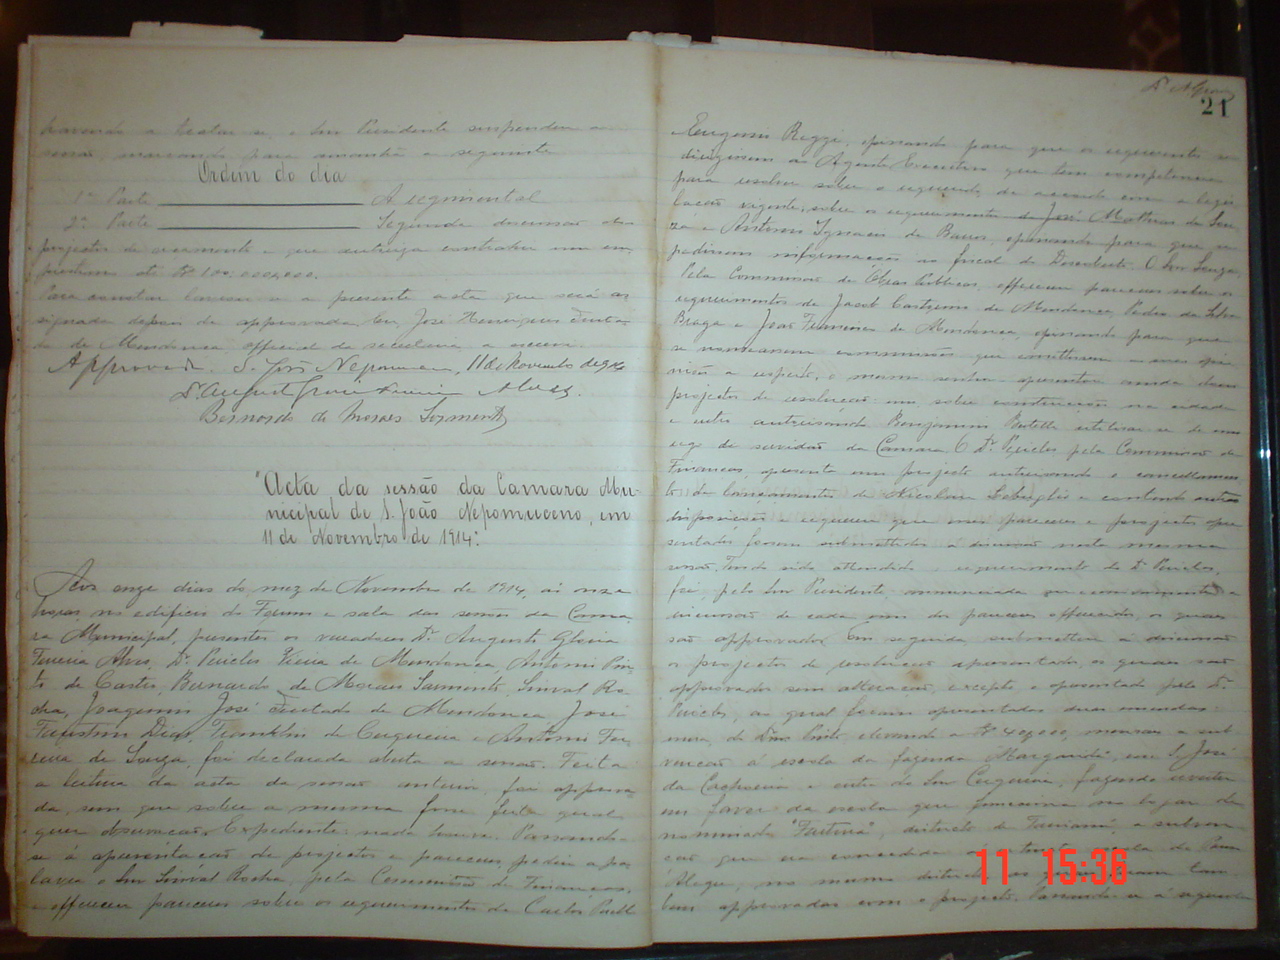 havendo a tratar-se, o Snr Presidente suspendeu a
sessão, marcando para amanhã a seguinte
Ordem do dia
1ª Parte ———— A regimental
2ª Parte ———— Segunda discussão dos
projectos de orçamento e que autoriza contrahir um em
prestimo até Rs 100:000$000.
Para constar lavrou-se a presente acta que será as
signada depois de approvada. Eu, José Henriques Furta
do de Mendonça, official da secretaria, a escrevi.
Approvada. S. João Nepomuceno, 11 de Novembro de 1914
Dr. Augusto Gloria Ferreira Alves.
Bernardo de Moraes Sarmento
"Acta da sessão da Camara Mu-
nicipal de S. João Nepomuceno, em
11 de Novembro de 1914."
Aos onze dias do mez de Novembro de 1914, ás onze
horas, no edificio do Forum e sala das sessões da Cama
ra Municipal, presentes os vereadores Dr. Augusto Gloria
Ferreira Alves, Dr. Pericles Vieira de Mendonça, Antonio Pin
to de Castro, Bernardo de Moraes Sarmento, Sinval Ro
cha, Joaquim José Furtado de Mendonça, José
Faustino Dias, Franklin de Cerqueira e Antonio Fer
reira de Souza, foi declarada aberta a sessão. Feita
a leitura da acta da sessão anterior, foi approva
da sem que sobre a mesma fosse feita qual
quer observação. Expediente: nada houve. Passando-
se á apresentação de projectos e pareceres, pediu a pa
lavra o Snr Sinval Rocha, pela Commissão de Finanças,
e offereceu pareceres sobre os requerimentos de Carlos
21
Eugenio Reggi, opinando para que os requerentes se
dirigissem ao Agente Executivo que tem competencia
para resolver sobre o requerido, de accordo com a legis
lação vigente; sobre os requerimentos de José Mathias de Sou
za e Antonio Ignacio de Barros, opinando para que se
pedissem informações ao fiscal do Descoberto. O Snr Souza,
pela Commissão de Obras Publicas, offereceu pareceres sobre os
requerimentos de Jacob Castrino de Mendonça, Pedro da Silva
Braga e João Francisco de Mendonça, opinando para que
se nomeassem commissões que emittissem a sua opi
nião a respeito; o mesmo senhor apresentou ainda dous
projectos de resolução: um sobre construcções na cidade
e outro autorisando Benjamin Butelli utilisar-se de um
rego de servidão da Camara. O Dr. Pericles, pela Commissão de
Finanças, apresenta um projecto autorisando o cancellamen
to do lançamento de Nicolau e contendo outras
disposições e requereu que seus pareceres e projectos apre
sentados fossem submettidos a discussão nesta mesma
sessão. Tendo sido attendido o requerimento do Dr. Pericles,
foi, pelo Snr Presidente, annunciada a
discussão de cada um dos pareceres offerecidos, os quaes
são approvados. Em seguida, submetteu a discussão
os projectos de resolução apresentados, os quaes são
approvados sem alteração, excepto o apresentado pelo Dr.
Pericles, ao qual foram apresentadas duas emendas:
uma, do Snr Pinto, elevando a Rs 40$000, mensaes a sub
venção á escola da fazenda em S. José
da Cachoeira e outra do Snr Cerqueira, fazendo reverter
em favor da escola que funcciona no logar de
nominado "Fartura", districto de Taruassú, a subven
ção que era concedida á escola de Pouso
Alegre, no mesmo districto, os quaes foram tam
bem approvadas com o projecto. Passando-se á segunda
11 15:36